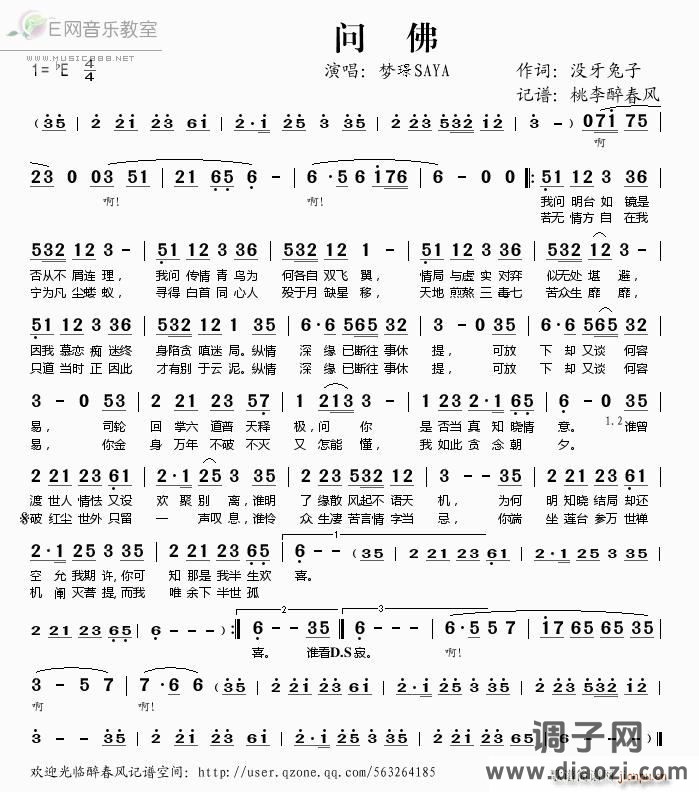 E网音乐教室
www.music888.net
问 佛
1=♭E 4/4 演唱：梦璟SAYA 作词：没牙兔子
记谱：桃李醉春风
（35 | 2 21 23 61 | 2·1 25 3 35 | 2 23 532 12 | 3 - ）071 75 |
啊
23 0 03 51 | 21 65 6 - | 6·56 176 | 6 - 0 0 ||: 51 12 3 36 |
啊! 啊! 我问 明台 如 镜是
若无 情方 自 在我
532 12 3 - | 51 12 3 36 | 532 12 3 - | 51 12 3 36 | 532 12 3 - |
否从不 屑连 理， 我问 传情 青 鸟为 何各自 双飞 翼， 情局 与虚 实 对弈 似无处 堪 避，
宁为凡 尘蝼 蚁， 寻得 白首 同 心人 殁于月 缺星 移， 天地 煎熬 三 毒七 苦众生 靡 靡，
51 12 3 36 | 532 12 1 35 | 6·6 565 35 32 | 3 - - 35 | 6·6 565 35 32 |
因我 慕恋 痴 迷终 身陷贪 嗔迷 局。纵情 深 缘 已断往 事休 提， 可放 下 却 又谈 何容
只道 当时 正 因此 才有别 于云 泥。纵情 深 缘 已断往 事休 提， 可放 下 却 又谈 何容
3 - 0 53 | 2 21 23 57 | 1 213 3 - | 1 23 2·1 65 | 6 - 0 35 |
易， 司轮 回 掌六 道普 天释 极，问 你 是 否当 真 知晓情 意。 谁曾
易， 你金 身 万年 不破 不灭 又 怎能 懂， 我 如此 贪 念朝 夕。 1,2
2 21 23 61 | 2·1 25 3 35 | 2 23 532 12 | 3 - - 35 | 2 21 23 61 |
渡 世人 情怯 又设 欢 聚 别 离，谁明 了 缘散 风起不 语天 机， 为何 明 知晓 结局 却还
破 红尘 世外 只留 一 声叹 息，谁怜 众 生凄 苦言情 字当 忌， 你端 坐 莲台 参万 世禅
2·1 25 3 35 | 2 21 23 65 | 6 - - (35 | 2 21 23 61 | 2·1 25 3 35 |
空 允我 期 许，你可 知 那是 我半 生欢 喜。
机 阐 灭菩 提，而我 唯 余下 半世 孤
2 21 23 65 | 6 - - - ) :|| 6 - - 35 :|| 6 - - - | 6·5 5 7 | 17 65 65 35 |
喜。 谁看D.S 寂。 啊!
3 - 5 7 | 7·6 6 (35 | 2 21 23 61 | 2·1 25 3 35 | 2 23 532 12 |
啊 啊!
3 - - 35 | 2 21 23 61 | 2·1 25 3 35 | 2
欢迎光临醉春风记谱空间：http://user.qzone.qq.com/563264185
调子网
www.diaozi.com